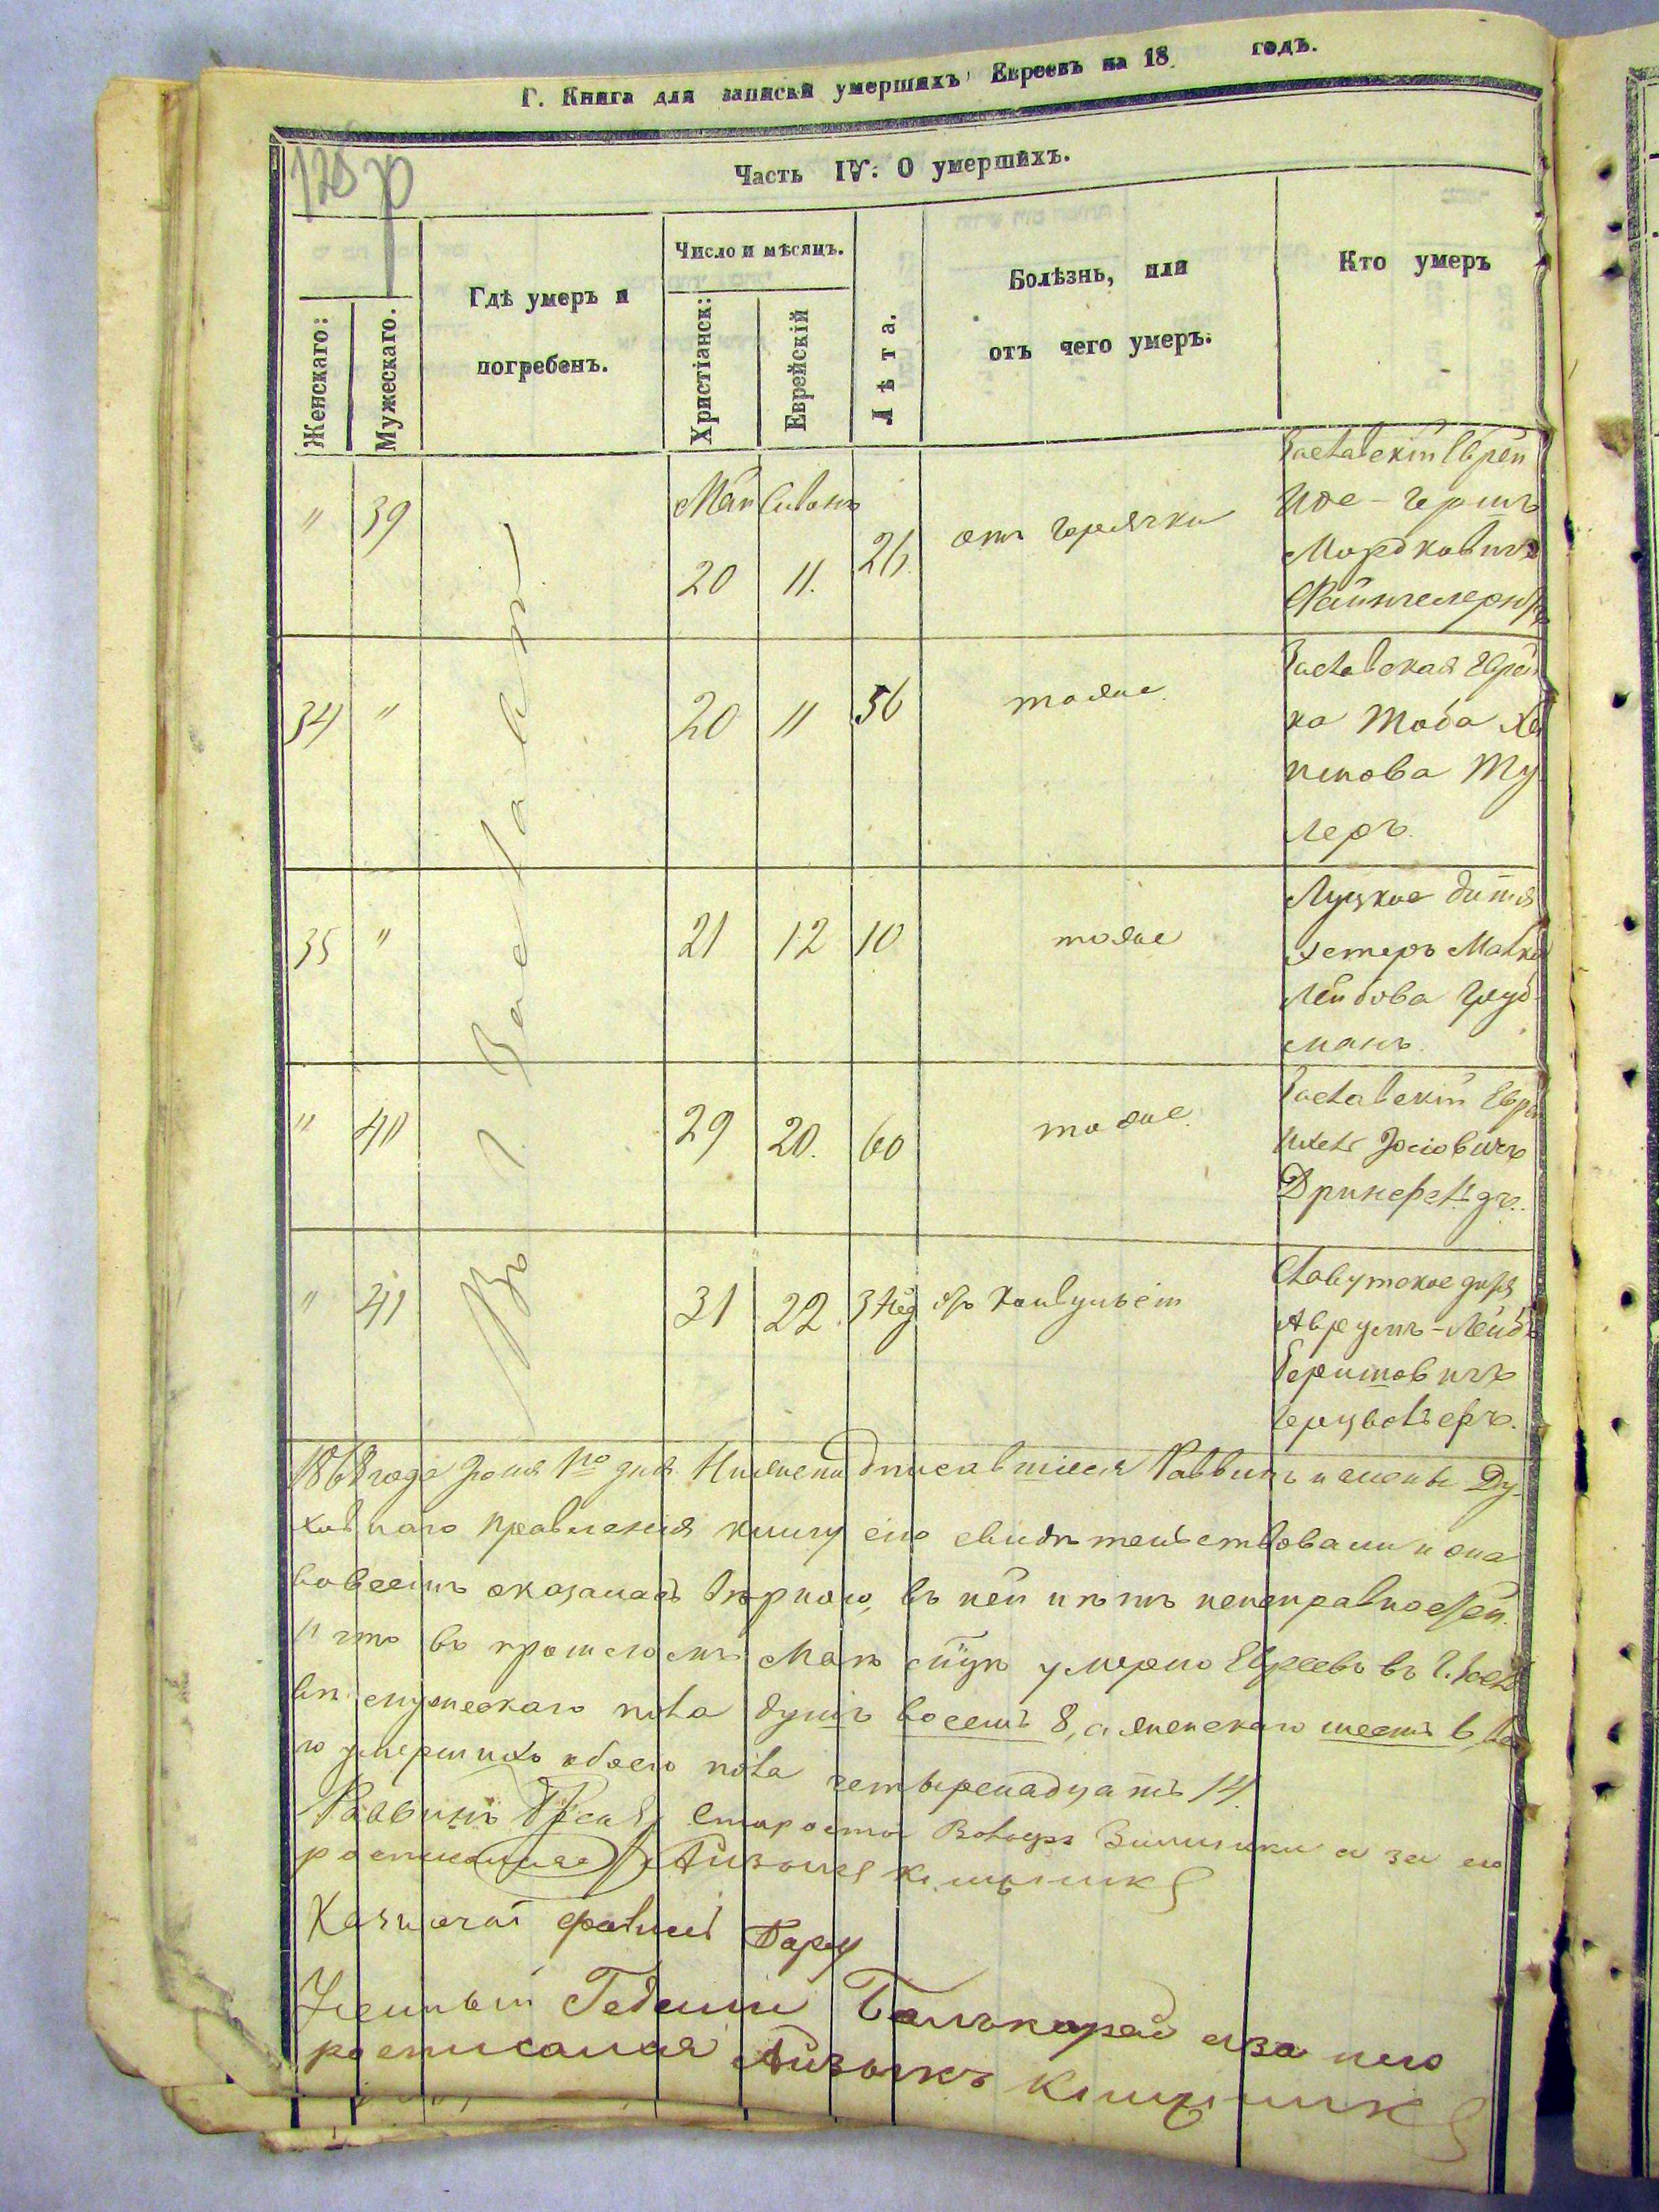 Г. Книга для записки умершихъ Евреевъ на 18 годъ.
Часть IV: О умершихъ.
Женскаго:
Мужескаго.
Гдѣ умеръ и
погребенъ.
Число и мѣсяцъ.
Христіанск:
Еврейскій
Лѣта.
Болѣзнь, или
отъ чего умеръ.
Кто умеръ
Въ г. Заславѣ
" 39 Май Сивонъ 20 11. 26. отъ горячки
Заславскій Еврей
Иос-Гершъ
Мордковичъ
34 " 20 11 56 тоже.
Заславская Еврей
ка Тоба Ха
имова Ту
леръ.
35 " 21 12 10 тоже
Луцкое дитя
Эстеръ Малка
Лейбова Груд
манъ.
" 40 29 20. 60 тоже.
Заславскій Еврей
Іосіовичъ
Дринфельдъ.
" 41 31 22. 3 нед отъ конвульсіи
Славутское дитя
Аврумъ-Лейбъ
Берковичъ
1868 года Іюня 1го дня Нижеподписавшіеся Раввинъ и члены Ду-
ховнаго правленія книгу сію свидѣтельствовали и она
вовсемъ оказалась вѣрною, въ ней нѣтъ неисправностей.
и что въ прошломъ Маѣ м-цѣ умерло Евреевъ въ г. Засла
вѣ мужескаго пола душъ восемь 8, а женскаго шесть 6, все
го умершихъ обоего пола четыренадцать 14.
Раввинъ Староста а за его
росписался Айзикъ
Казначей Барац
Ученый Гедали а за него
росписался Айзикъ